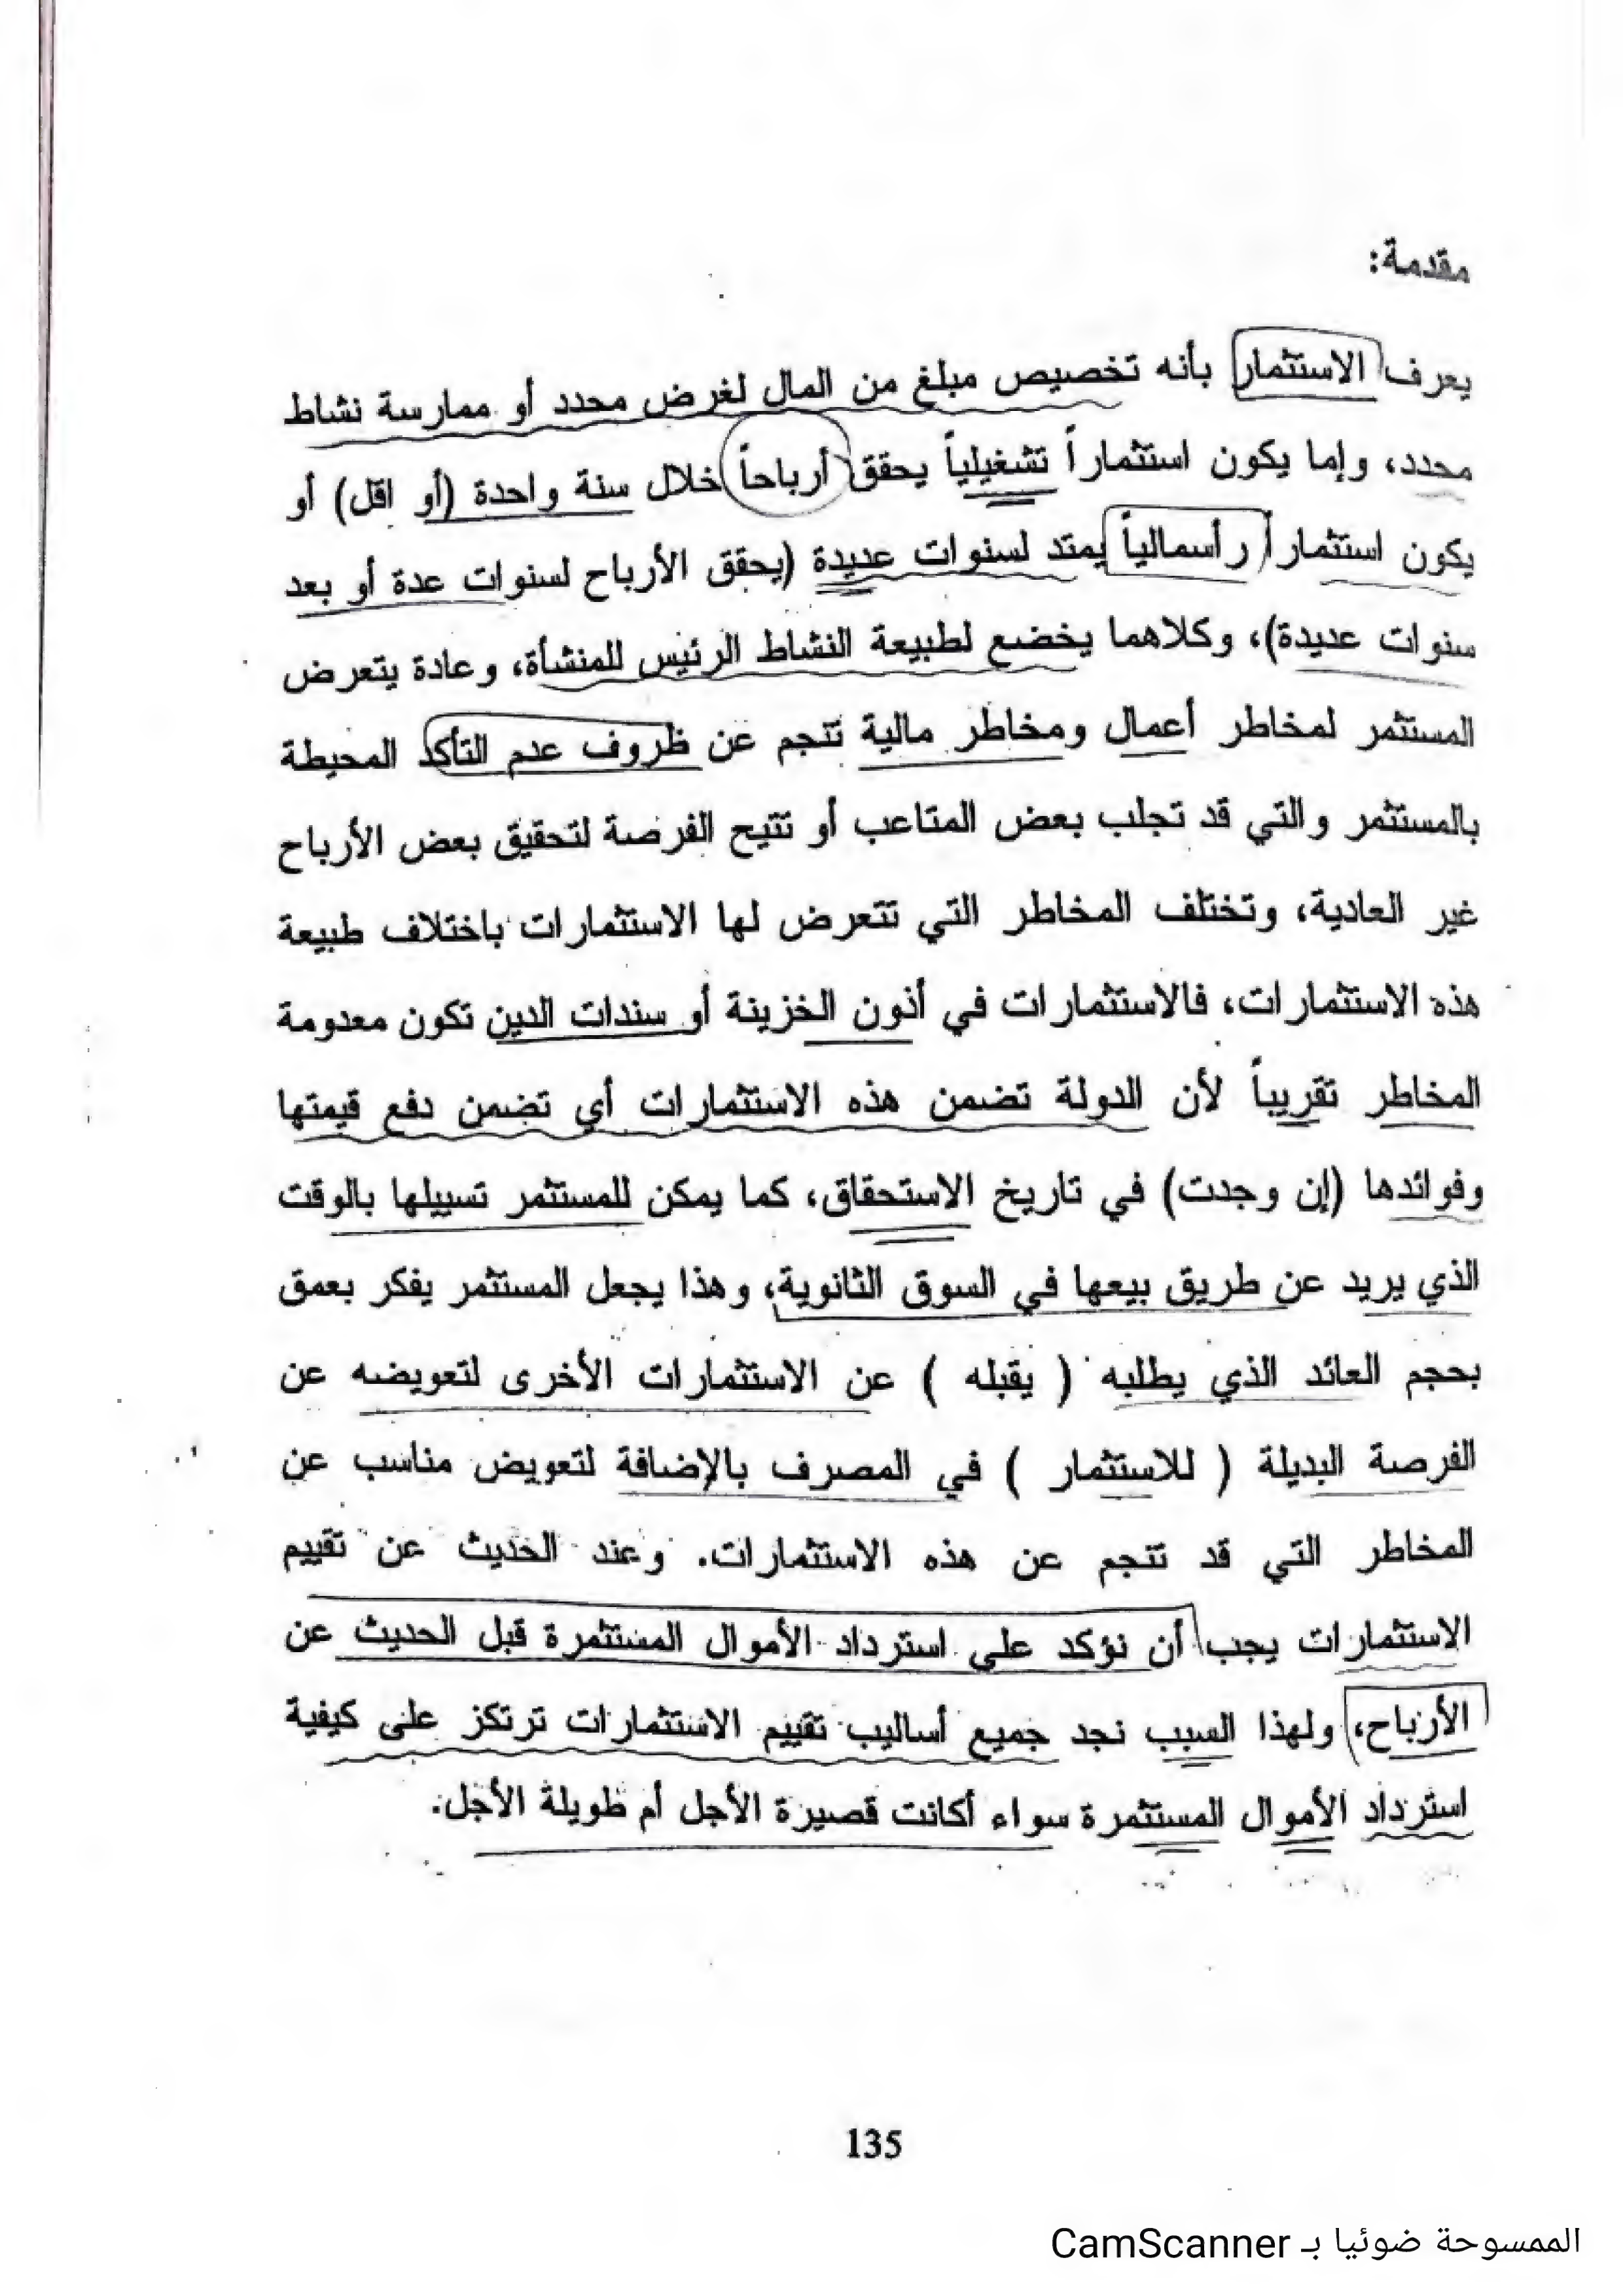 مقدمة:
يعرف الاستثمار بأنه تخصيص مبلغ من المال لغرض محدد أو ممارسة نشاط
محدد، وإما يكون استثماراً تشغيلياً يحقق أرباحاً خلال سنة واحدة (أو اقل) أو
يكون استثماراً رأسمالياً يمتد لسنوات عديدة (يحقق الأرباح لسنوات عدة أو بعد
سنوات عديدة)، وكلاهما يخضع لطبيعة النشاط الرئيس للمنشأة، وعادة يتعرض
المستثمر لمخاطر أعمال ومخاطر مالية تنجم عن ظروف عدم التأكد المحيطة
بالمستثمر والتي قد تجلب بعض المتاعب أو تتيح الفرصة لتحقيق بعض الأرباح
غير العادية، وتختلف المخاطر التي تتعرض لها الاستثمارات باختلاف طبيعة
هذه الاستثمارات، فالاستثمارات في أذون الخزينة أو سندات الدين تكون معدومة
المخاطر تقريباً لأن الدولة تضمن هذه الاستثمارات أي تضمن دفع قيمتها
وفوائدها (إن وجدت) في تاريخ الاستحقاق، كما يمكن للمستثمر تسييلها بالوقت
الذي يريد عن طريق بيعها في السوق الثانوية، وهذا يجعل المستثمر يفكر بعمق
بحجم العائد الذي يطلبه ( يقبله ) عن الاستثمارات الأخرى لتعويضه عن
الفرصة البديلة ( للاستثمار ) في المصرف بالإضافة لتعويض مناسب عن
المخاطر التي قد تنجم عن هذه الاستثمارات. وعند الحديث عن تقييم
الاستثمارات يجب أن نؤكد على استرداد الأموال المستثمرة قبل الحديث عن
الأرباح، ولهذا السبب نجد جميع أساليب تقييم الاستثمارات ترتكز على كيفية
استرداد الأموال المستثمرة سواء أكانت قصيرة الأجل أم طويلة الأجل.
135
الممسوحة ضوئيا بـ CamScanner